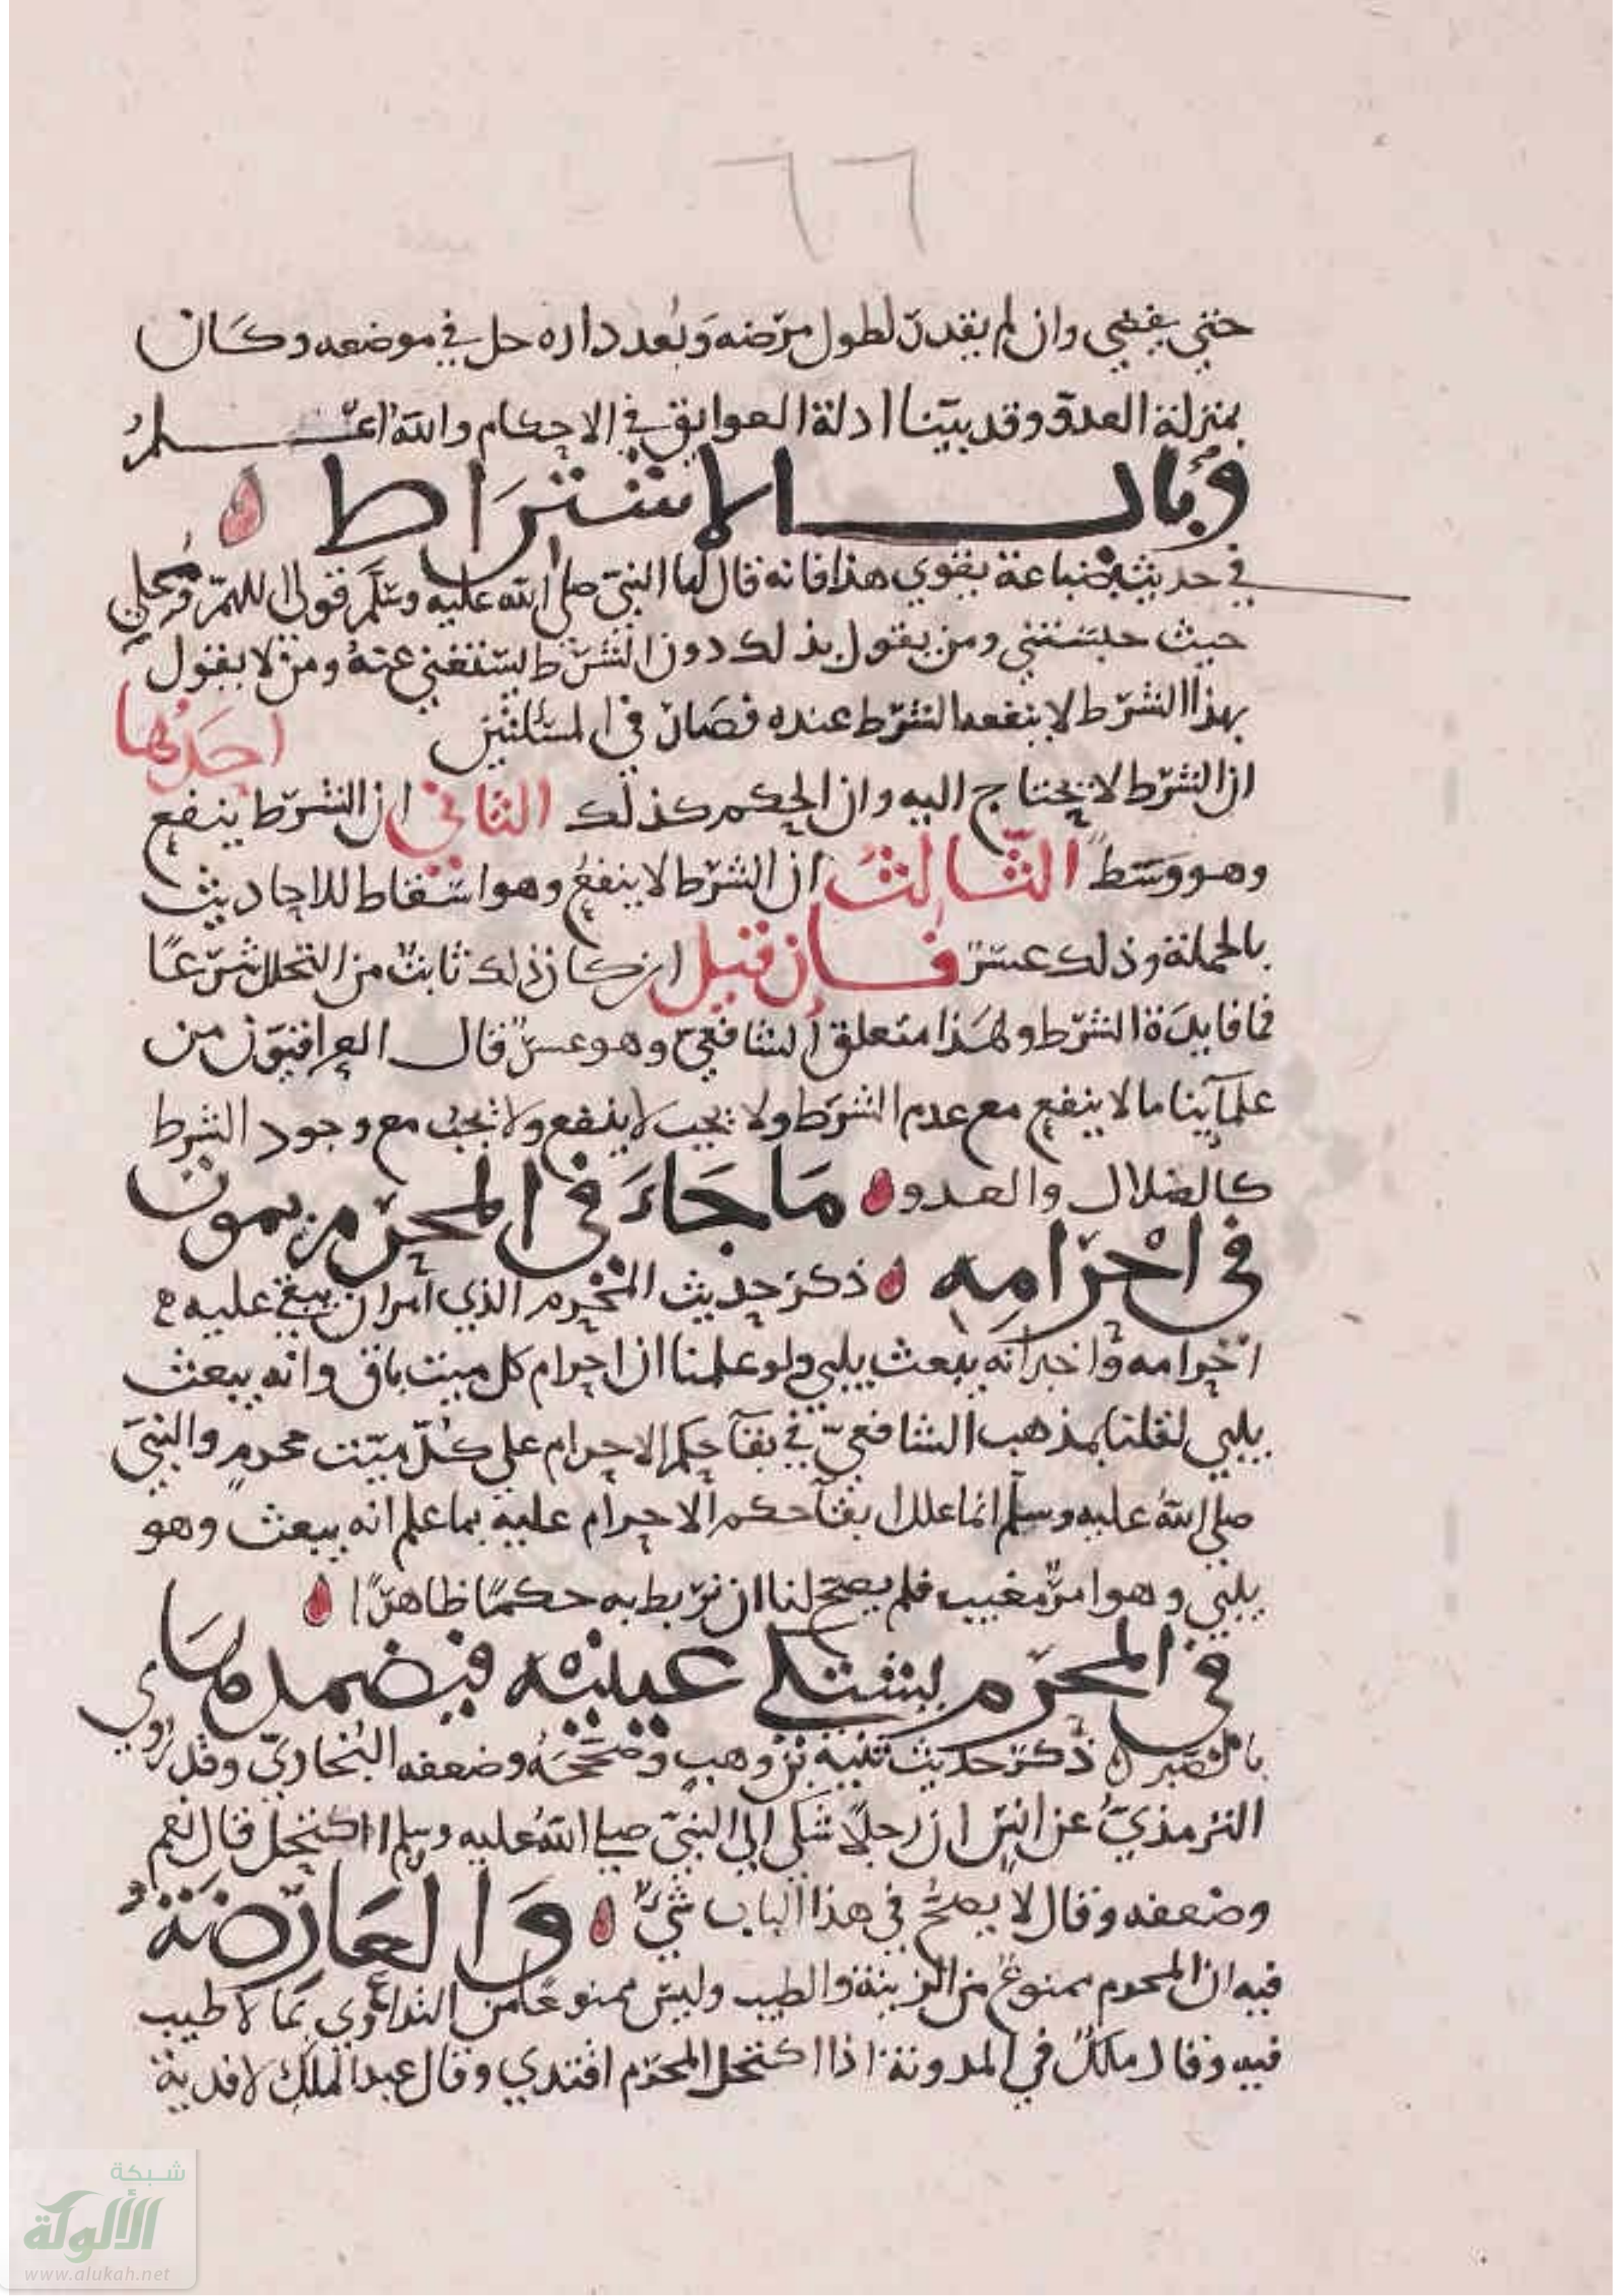 ٦٦
حتي يفضي وان لم يقدر لطول مرضه وبعد داره حل في موضعه وكان
بمنزلة العدو وقد بيّنا ادلة العوايق في الاحكام والله اعلم
وباب الاشتراط
في حديث ضباعة يقوي هذا فانه قال لها النبي صلى الله عليه وسلم قولى اللهم ومحلي
حيث حبستني ومن يقول بذلك دون الشرط يستغني عنه ومن لا يقول
بهذا الشرط لا ينفعه الشرط عنده فصار في المسئلتين احدها
ان الشرط لا يحتاج اليه وان الحكم كذلك الثاني ان الشرط ينفع
وهو وسط الثالث ان الشرط لا ينفع وهو اسقاط للاحاديث
بالجملة وذلك عسر فإن قيل ان كان ذلك ثابت من التحلل شرعًا
فما فايدة الشرط ولهذا متعلق الشافعي وهو عسر قال العراقيون من
علمآينا ما لا ينفع مع عدم الشرط ولا يجب لا ينفع ولا يجب مع وجود الشرط
كالضلال والعدو ما جاء في المحرم يموت
في احرامه ذكر حديث المحرم الذي امر ان يبقي عليه
احرامه واخبر انه يبعث يلبي ولو علمنا ان احرام كل ميت باق وانه يبعث
يلبي لقلنا بمذهب الشافعي في بقآ حكم الاحرام علي كل ميّت محرم والنبي
صلى الله عليه وسلم انما علل ابقآ حكم الاحرام عليه بما علم انه يبعث وهو
يلبي وهو امر مغيب فلم يصح لنا ان نربط به حكمًا ظاهرًا ما جاء
في المحرم يشتكي عينيه فيضمدها
بالصبر ذكر حديث نبيه بن وهب وصححه وضعفه البخاري وقد روي
الترمذي عن انس ان رجلًا شكى الى النبي صلى الله عليه وسلم ااكتحل قال نعم
وضعفه وقال لا يصح في هذا الباب شيء والعارضة
فيه ان المحرم ممنوع من الزينة والطيب وليس ممنوعًا من التداوي بما لا طيب
فيه وقال ملك في المدونة اذا اكتحل المحرم افتدي وقال عبد الملك لا فدية
شبكة
الألوكة
www.alukah.net